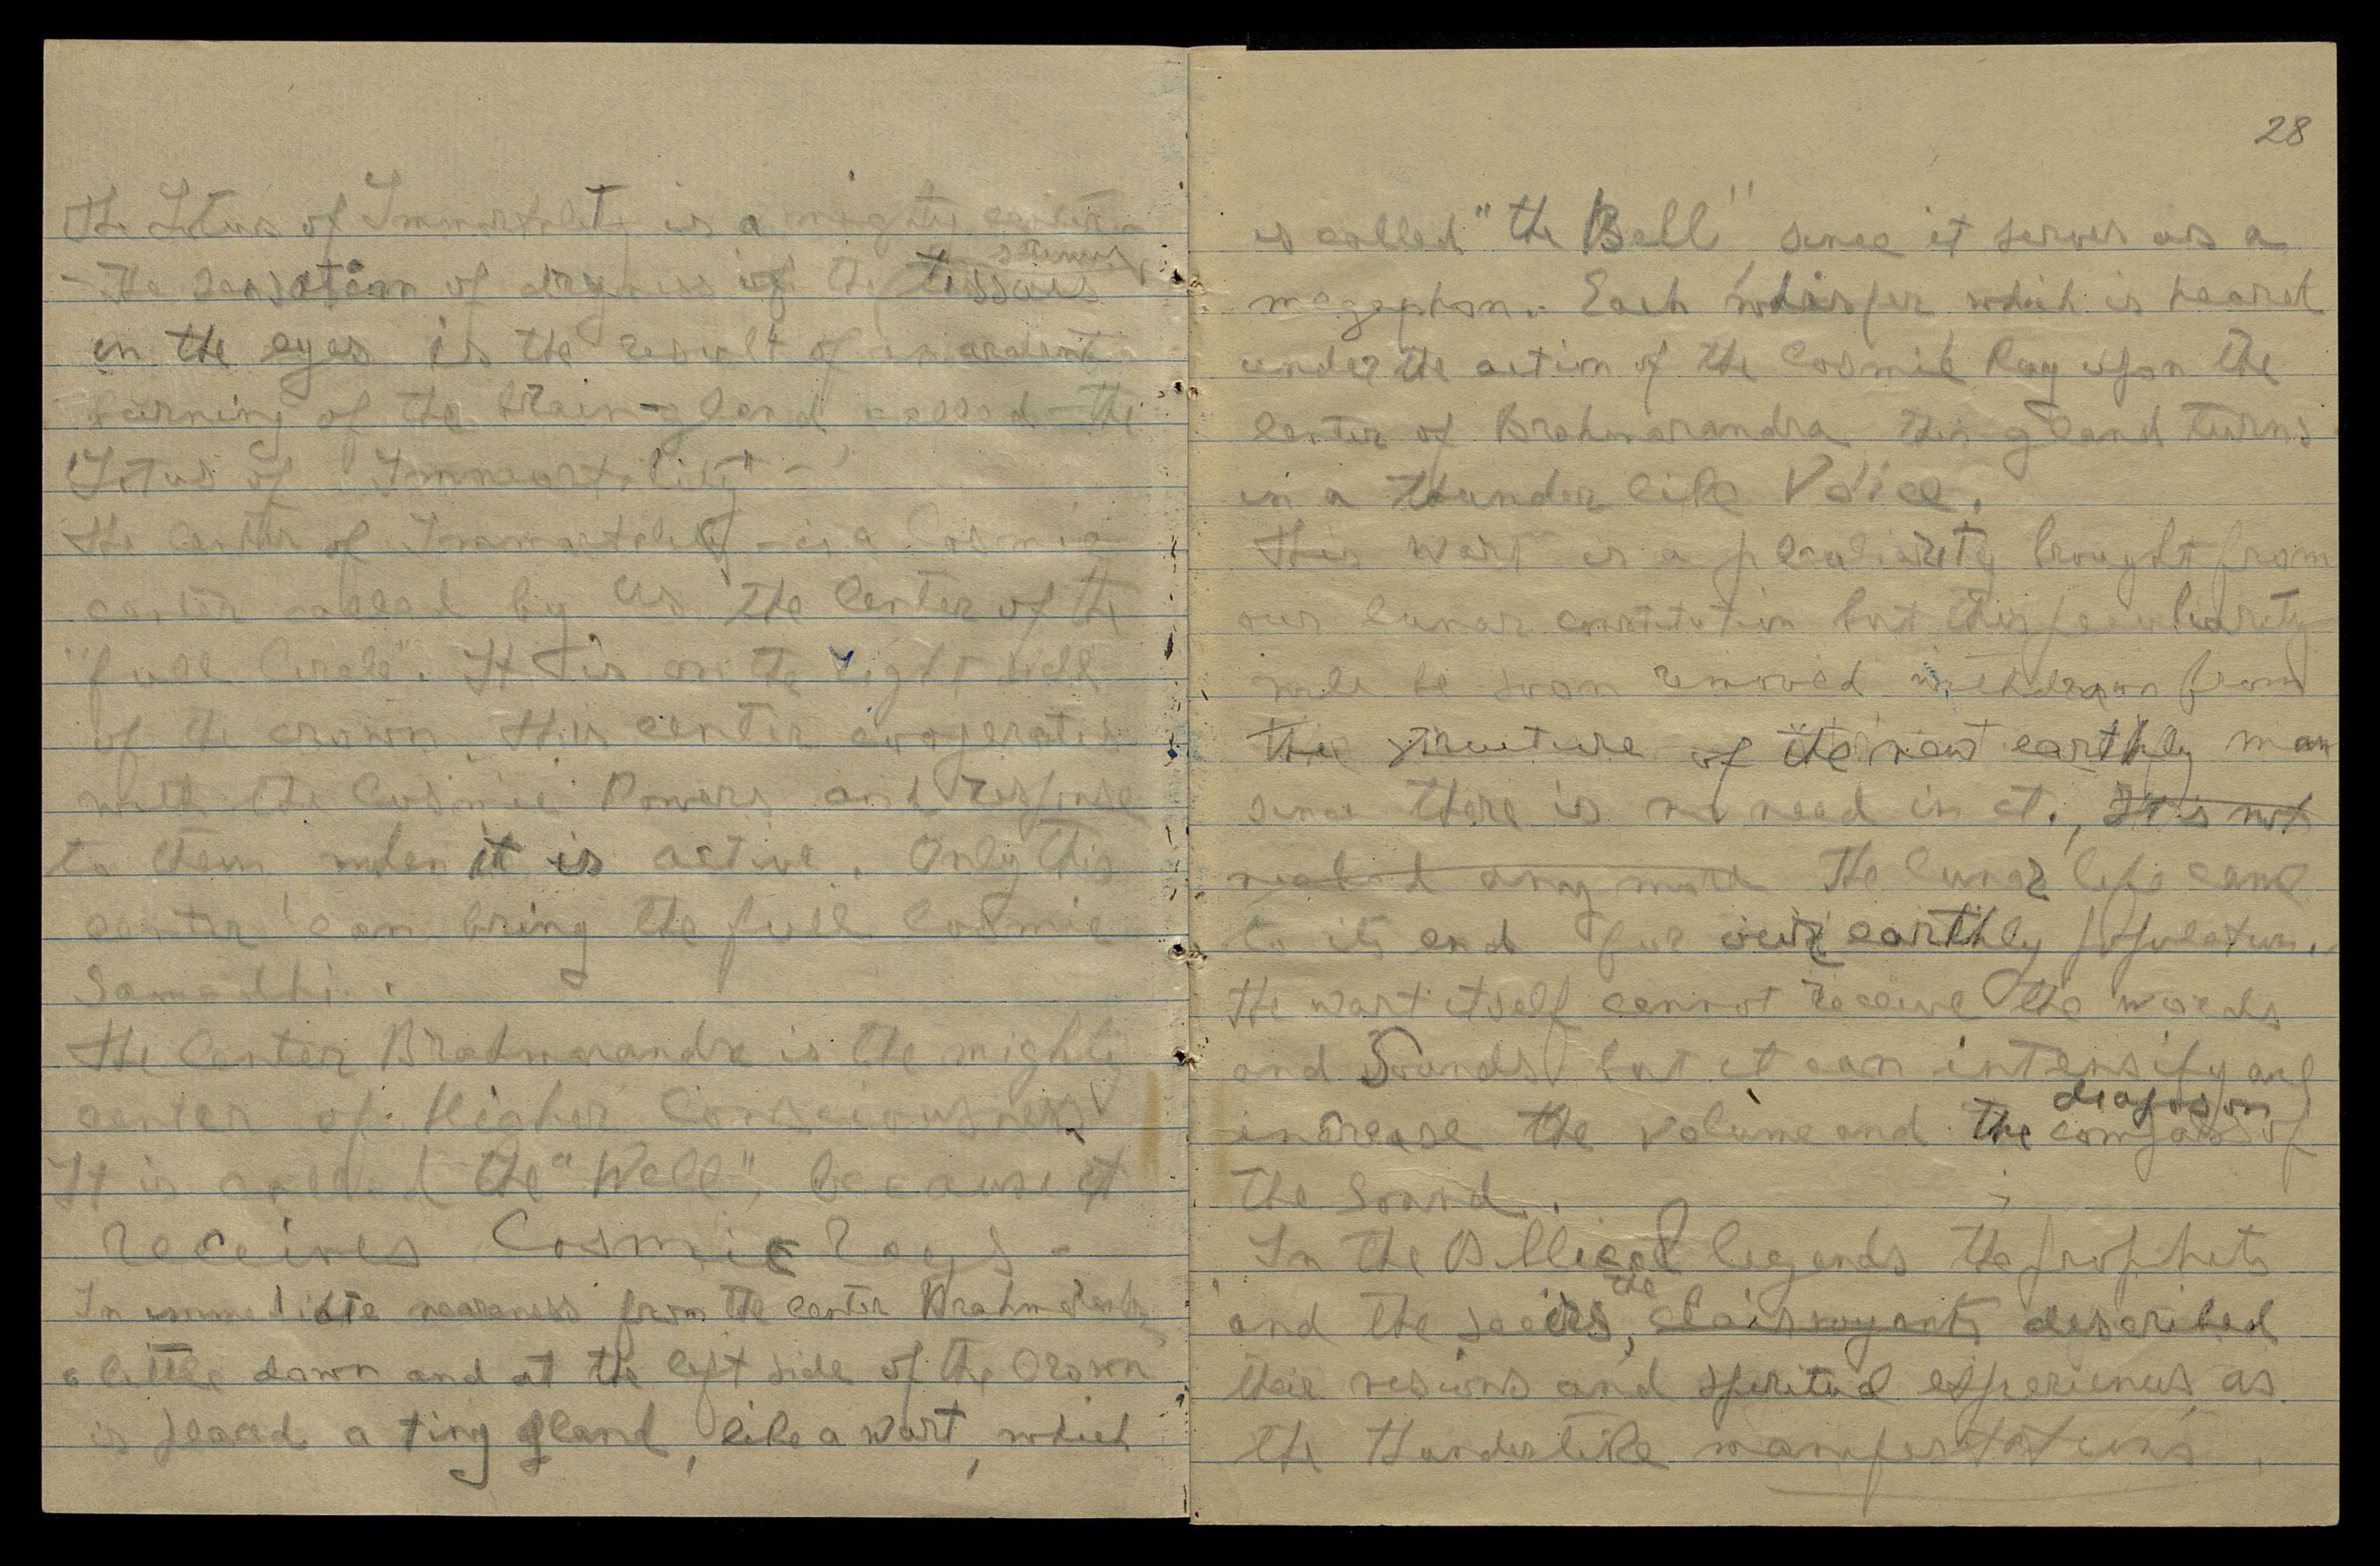 The Lotus of Immortality is a mighty center
- The sensation of dryness of the tissues
in the eyes is the result of an ardent
burning of the brain-gland called - the
"Lotus of Immortality" -
The Center of Immortality - is a Cosmic
center called by us the Center of the
"full Circle". It is on the right side
of the crown. This center cooperates
with the Cosmic Powers and response
to them when it is active. Only this
center can bring the full Cosmic
Samadhi.
The Center Brahmarandra is the mighty
center of Higher Consciousness
It is called the "Well", because it
receives Cosmic Rays -
In immediate nearness from the center Brahmarandra
a little down and at the left side of the Crown
is placed a tiny gland, like a wart, which
28
is called "the Bell" since it serves as a
megaphon. Each whisper which is heard
under the action of the Cosmic Ray upon the
Center of Brahmarandra this gland turns
in a thunder like Voice.
This wart is a peculiarity brought from
our lunar constitution but this peculiarity
will be soon removed withdrawn from
the structure of the new earthly man
since there is no need in it. It is not
needed any more The lunar life came
to its end for our earthly population.
The wart itself cannot receive the words
and Sounds but it can intensify and
diapason
increase the volume and the compass of
the Sound.
In the Biblical legends the prophets
the
and the seers, clairvoyants described
their visions and spiritual experiences as
the thunderlike manifestations.